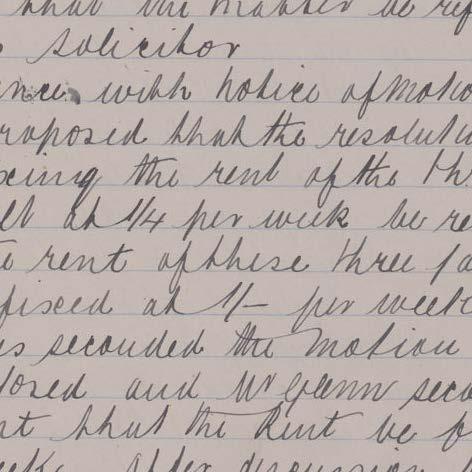 that the matter be ref
solicitor
ence with notice of motio
roposed that the resoluti
xing the rent of the thr
at 1/4 per week be re
e rent of these three
fixed at 1/- per week
s seconded the motion
osed and Mr Glenn seco
nt that the Rent be f
eek. After discussion